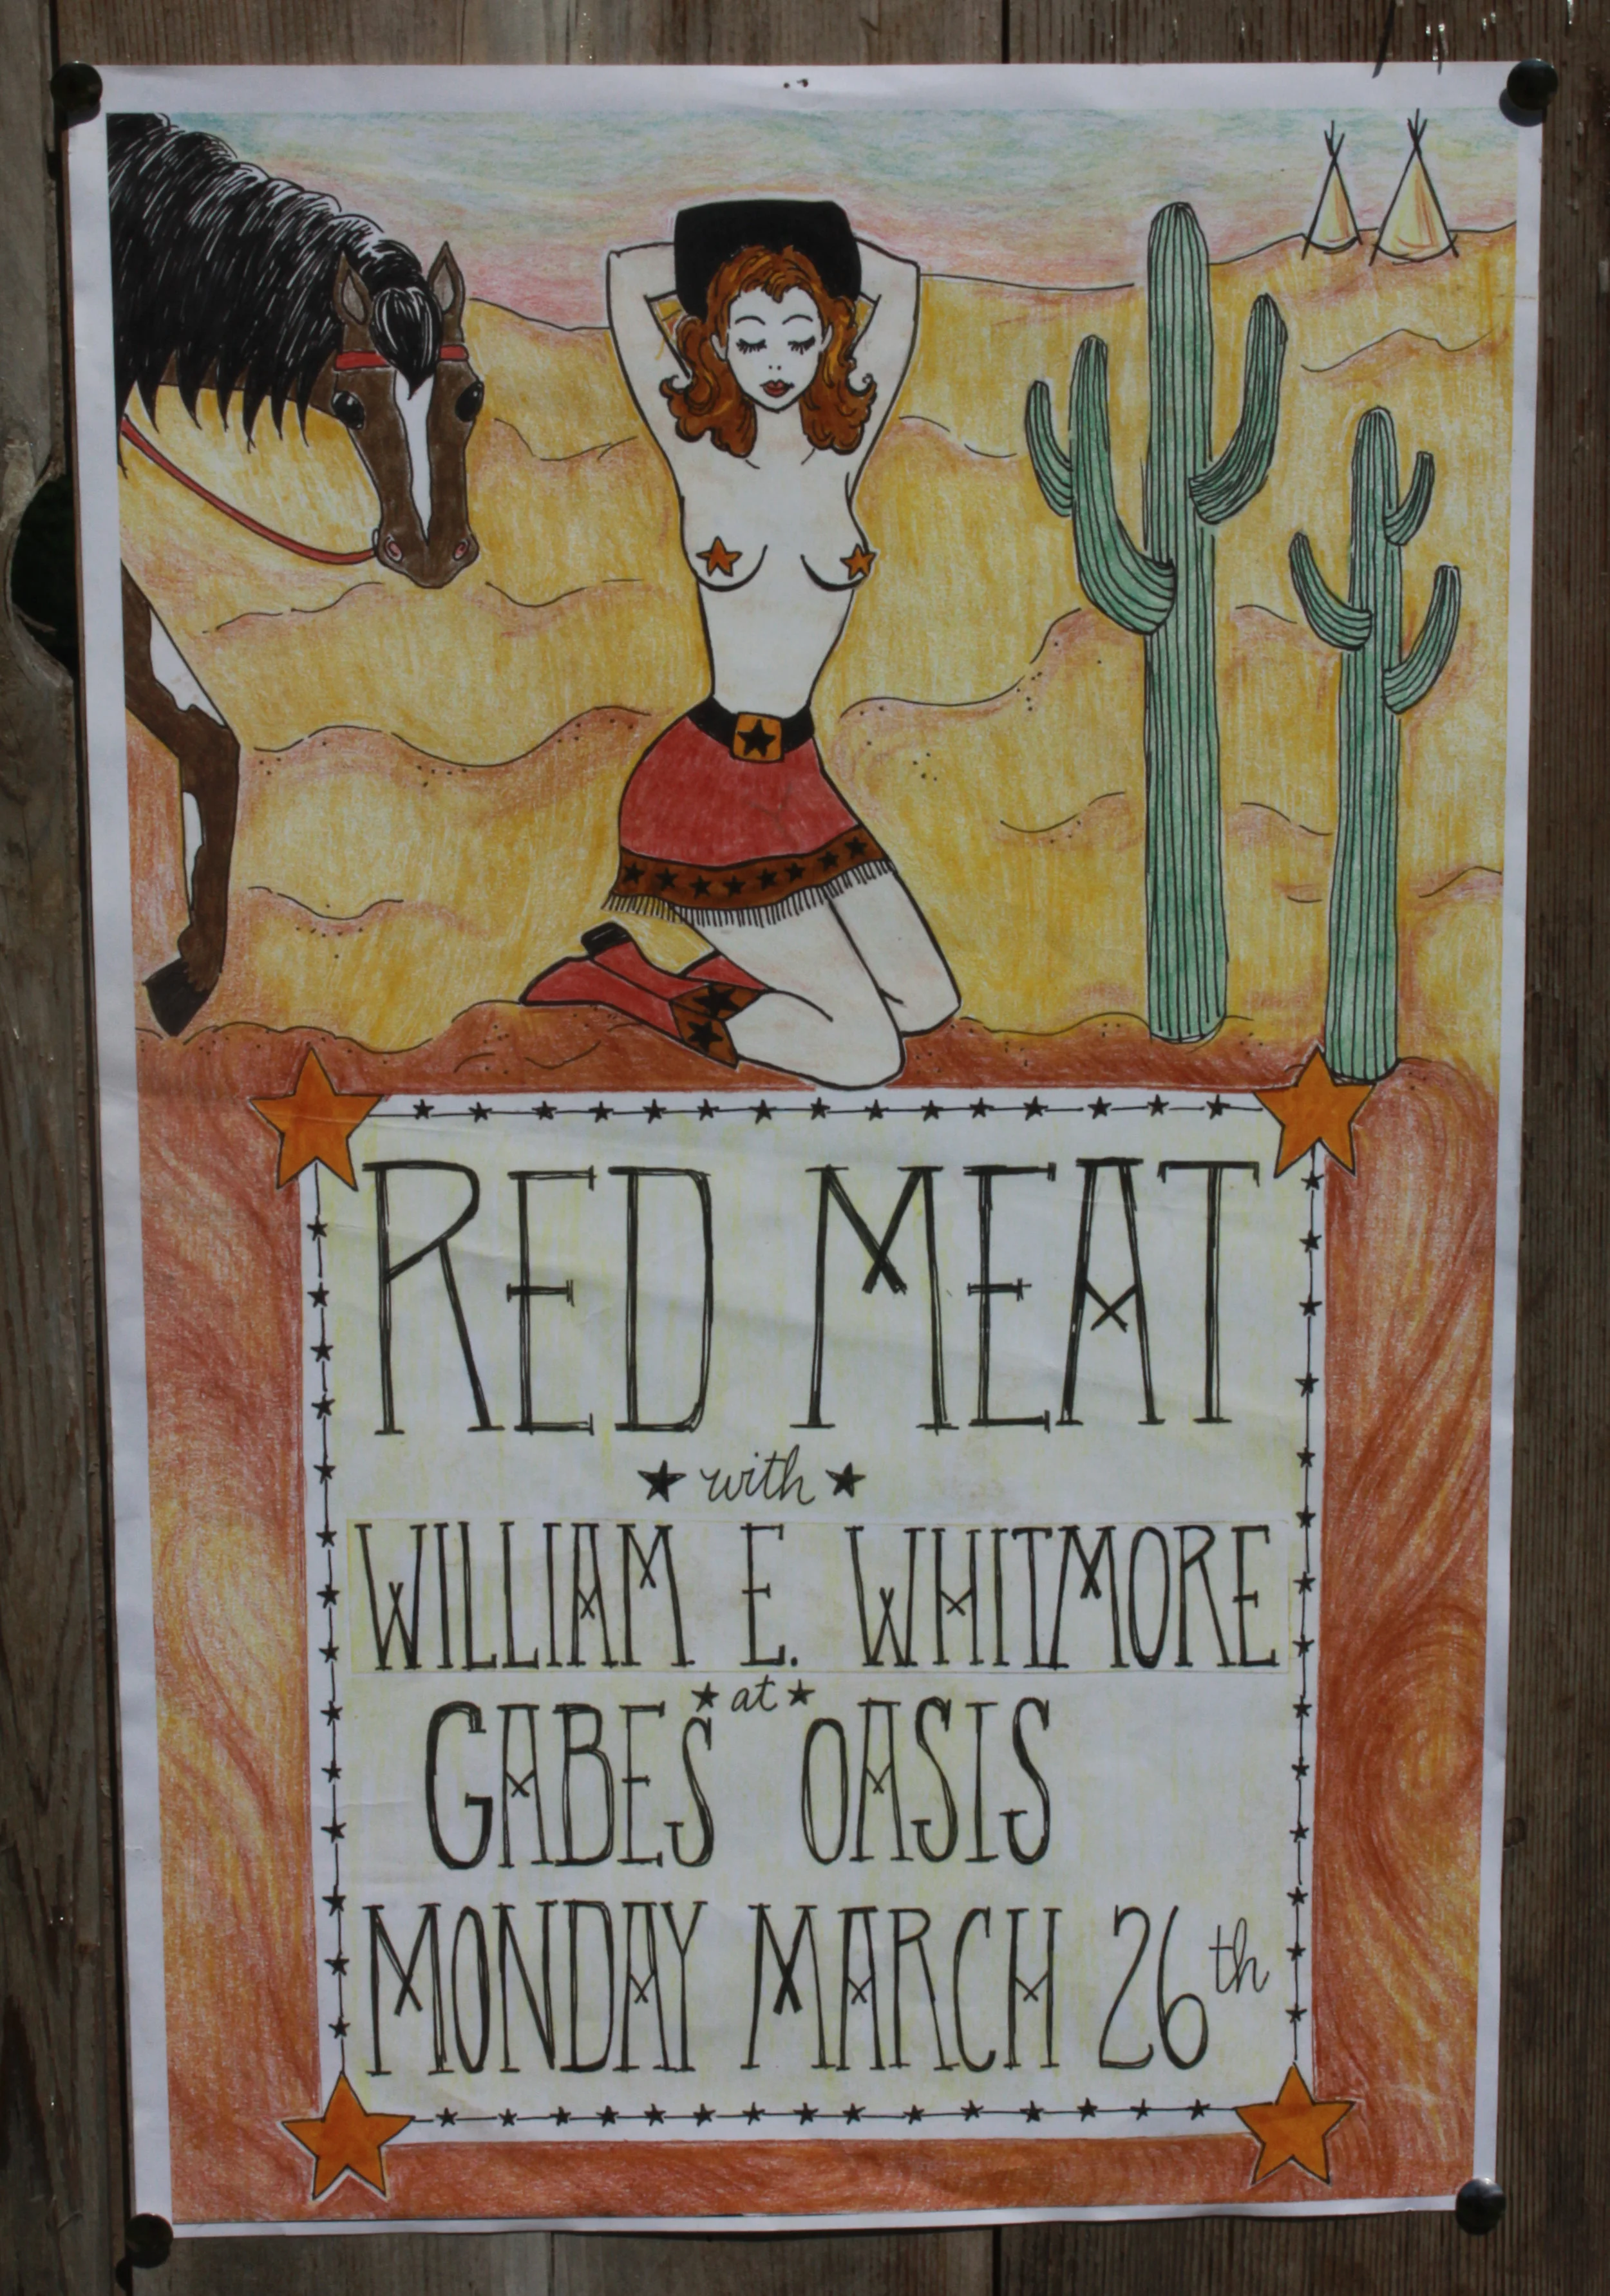 RED MEAT
with
WILLIAM E. WHITMORE
at
GABES OASIS
MONDAY MARCH 26th